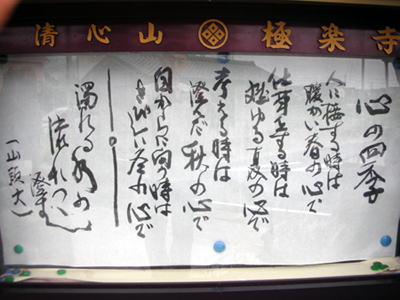 清心山 極楽寺
心の四季
人に接する時は
暖かい春の心で
仕事をする時は
燃ゆる夏の心で
考える時は
澄んだ秋の心で
自からに向う時は
きびしい冬の心で
濁れる水の
流れつつ
澄む
(山頭火)